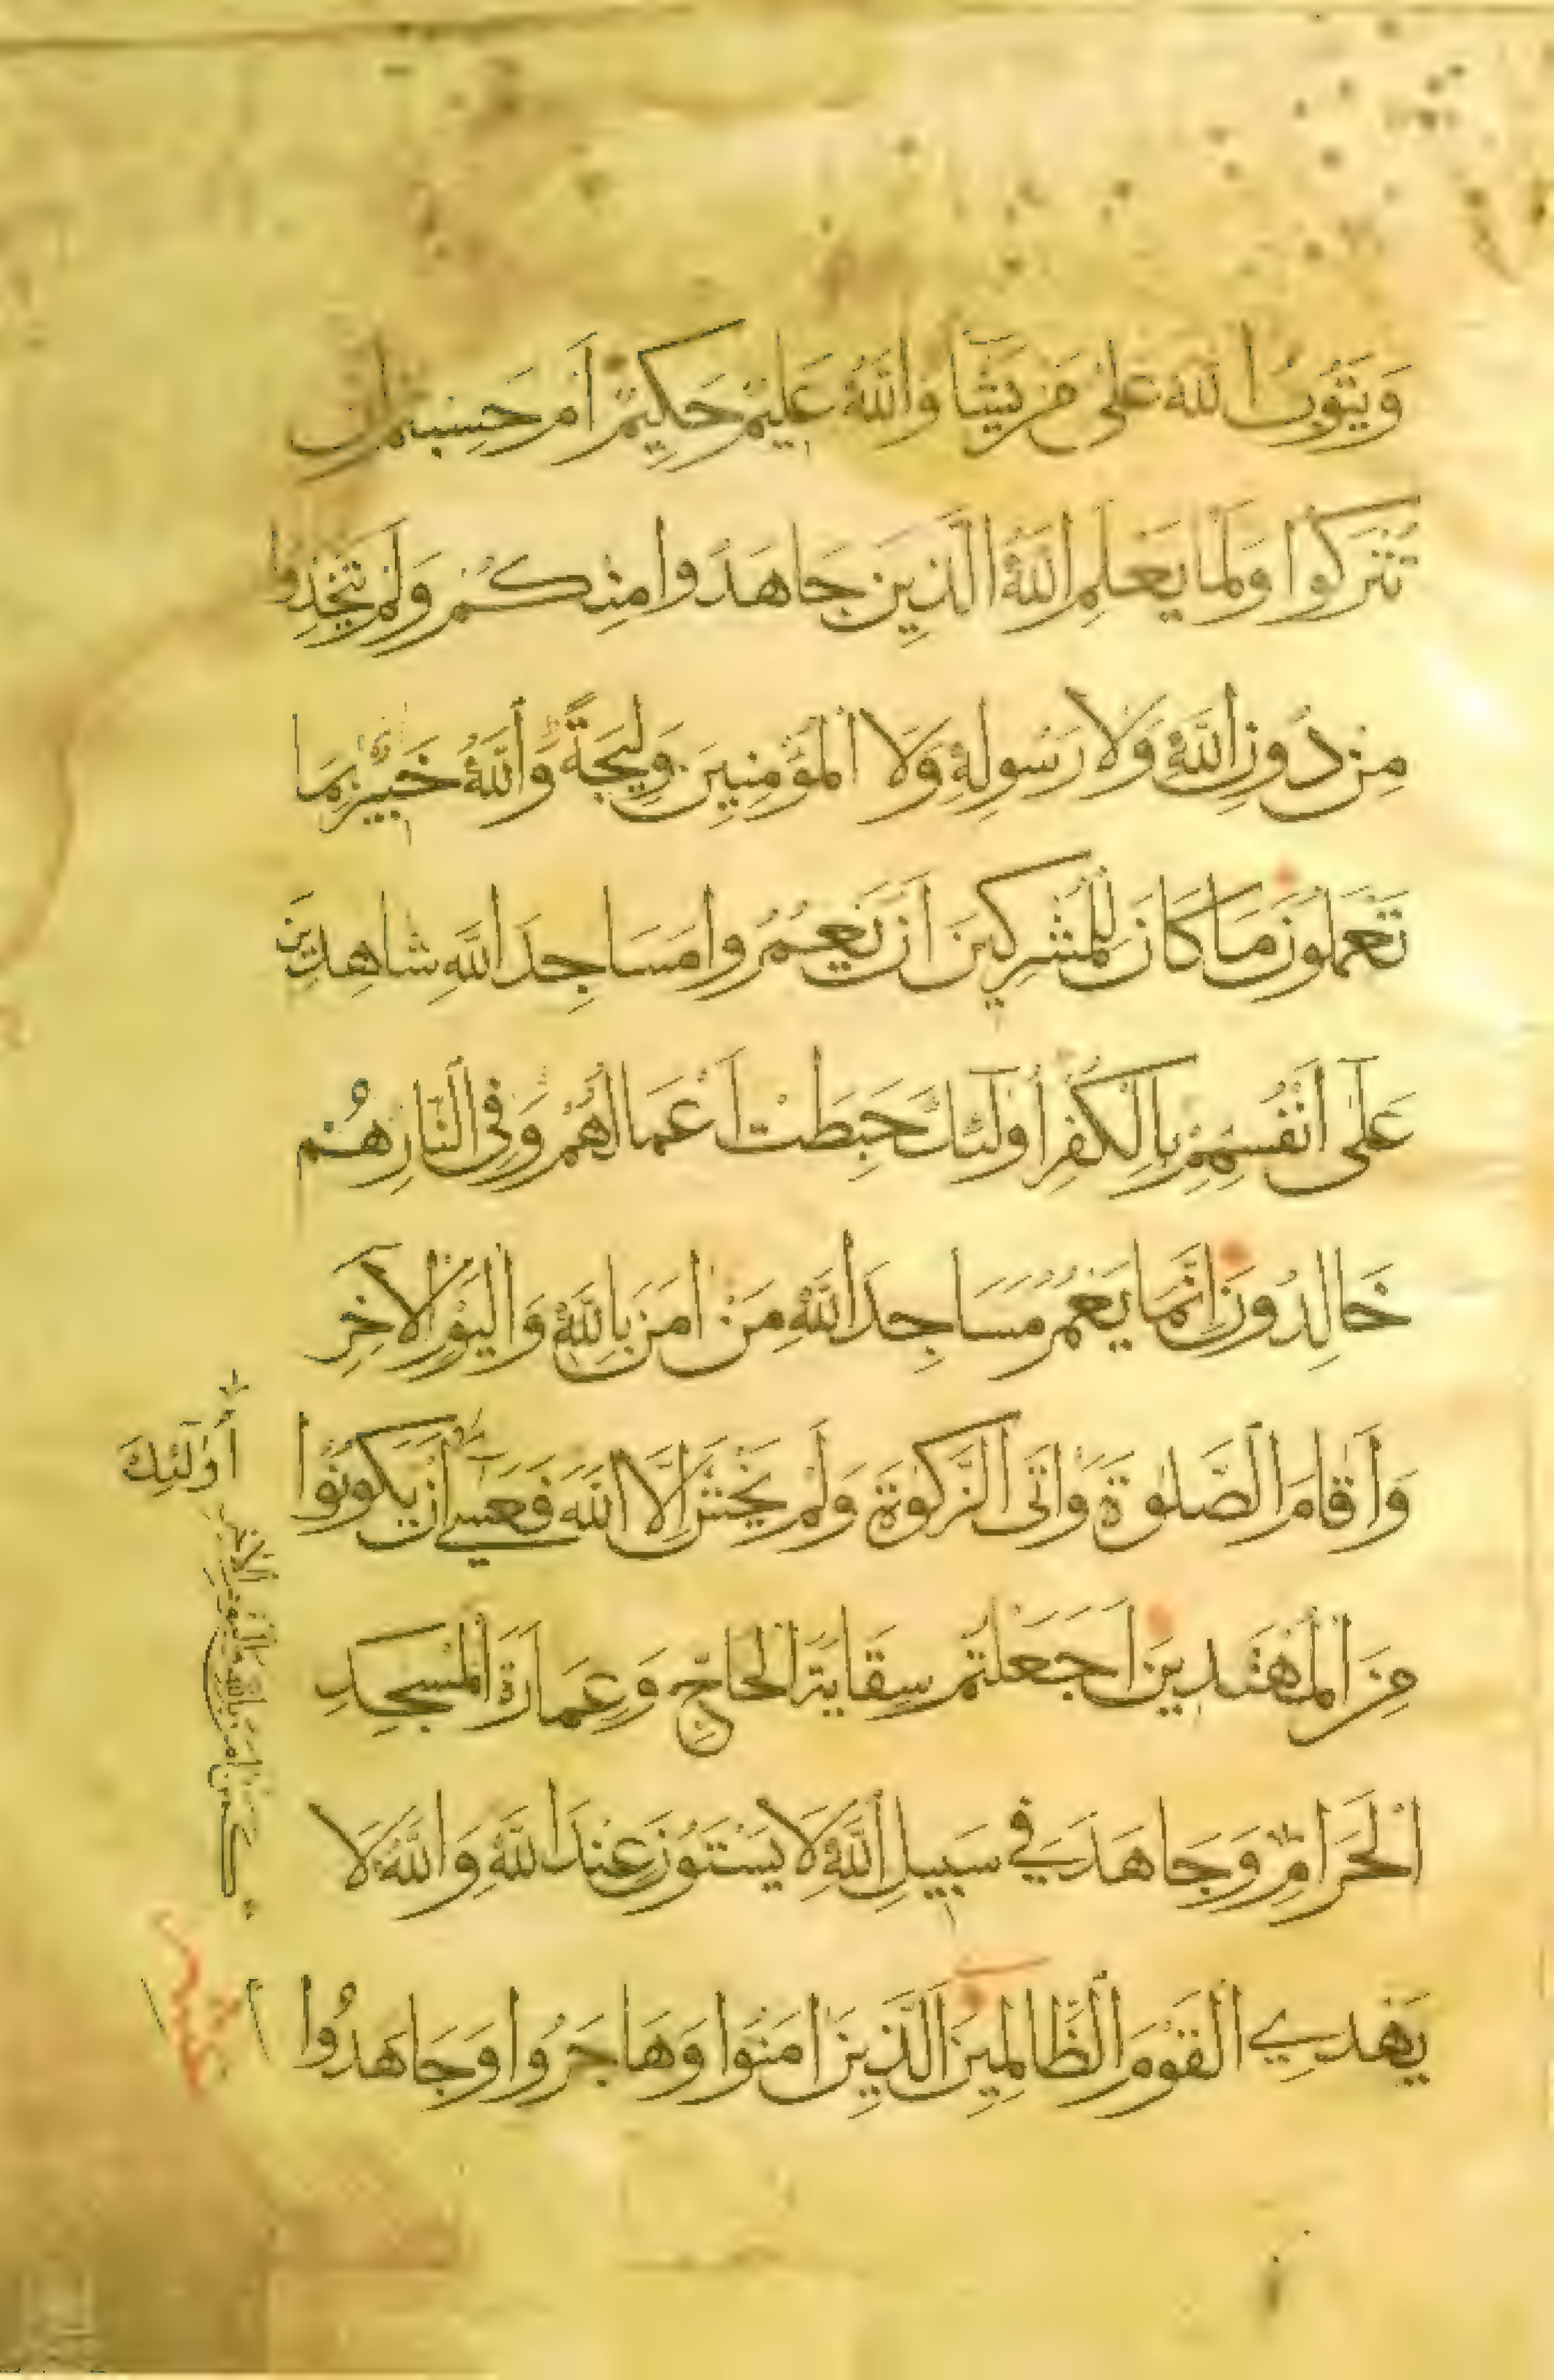 وَيَتُوبُ اللهُ عَلَى مَن يَشَآءُ وَاللهُ عَلِيمٌ حَكِيمٌ أَمْ حَسِبْتُمْ أَن
تُتْرَكُوا وَلَمَّا يَعْلَمِ اللهُ الَّذِينَ جَاهَدُوا مِنْكُمْ وَلَمْ يَتَّخِذُوا
مِنْ دُونِ اللهِ وَلَا رَسُولِهِ وَلَا الْمُؤْمِنِينَ وَلِيجَةً وَاللهُ خَبِيرٌ بِمَا
تَعْمَلُونَ مَا كَانَ لِلْمُشْرِكِينَ أَنْ يَعْمُرُوا مَسَاجِدَ اللهِ شَاهِدِينَ
عَلَى أَنْفُسِهِمْ بِالْكُفْرِ أُولَئِكَ حَبِطَتْ أَعْمَالُهُمْ وَفِي النَّارِ هُمْ
خَالِدُونَ إِنَّمَا يَعْمُرُ مَسَاجِدَ اللهِ مَنْ اٰمَنَ بِاللهِ وَالْيَوْمِ الْآخِرِ
وَأَقَامَ الصَّلٰوةَ وَاٰتَى الزَّكٰوةَ وَلَمْ يَخْشَ إِلَّا اللهَ فَعَسَى أَنْ يَكُونُوا
مِنَ الْمُهْتَدِينَ أَجَعَلْتُمْ سِقَايَةَ الْحَاجِّ وَعِمَارَةَ الْمَسْجِدِ
الْحَرَامِ وَجَاهَدَ فِي سَبِيلِ اللهِ لَا يَسْتَوُونَ عِنْدَ اللهِ وَاللهُ لَا
يَهْدِي الْقَوْمَ الظَّالِمِينَ الَّذِينَ اٰمَنُوا وَهَاجَرُوا وَجَاهَدُوا
أُولَٰئِكَ
كَمَنْ اٰمَنَ بِاللهِ وَالْيَوْمِ الْآخِرِ